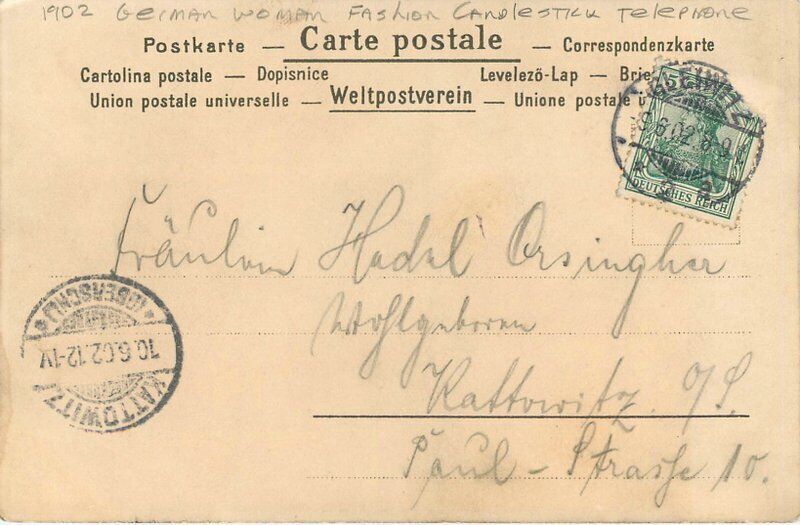 1902 GERMAN WOMAN FASHION CANDLESTICK TELEPHONE
Postkarte — Carte postale — Correspondenzkarte
Cartolina postale — Dopisnice Levelező-Lap — Brie
Union postale universelle — Weltpostverein — Unione postale u
5
6.02.8-9
DEUTSCHES REICH
Fräulein Hedel Orsingher
Wohlgeboren
Kattowitz O/S.
Paul-Strasse 10.
*(OBERSCHL.)*
10.6.02.12-1V.
KATTOWITZ